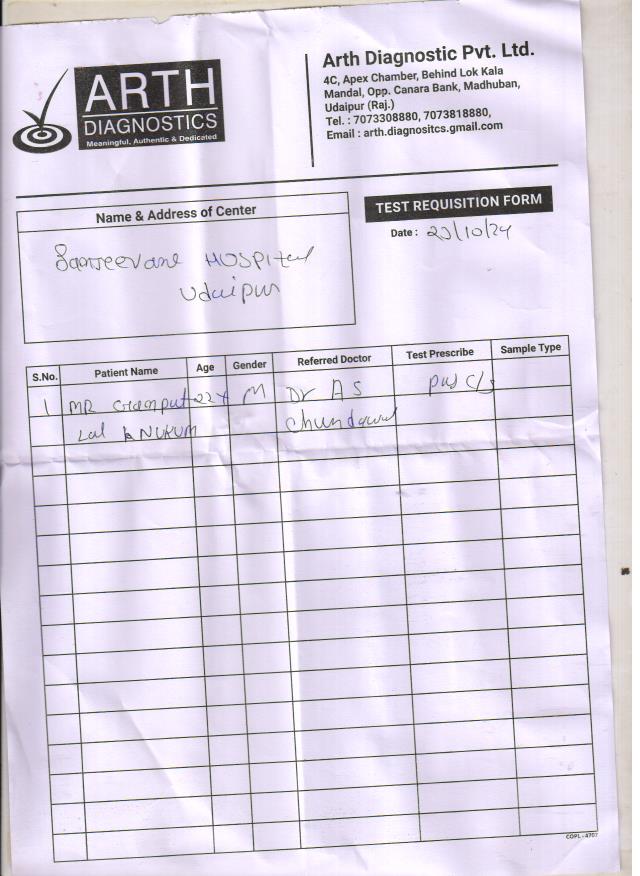 ARTH
DIAGNOSTICS
Meaningful, Authentic & Dedicated
Arth Diagnostic Pvt. Ltd.
4C, Apex Chamber, Behind Lok Kala
Mandal, Opp. Canara Bank, Madhuban,
Udaipur (Raj.)
Tel. : 7073308880, 7073818880,
Email : arth.diagnositcs.gmail.com
Name & Address of Center
TEST REQUISITION FORM
Date :
HOSPital
Udaipur
S.No. Patient Name Age Gender Referred Doctor Test Prescribe Sample Type
1 MR 22Y M Dr AS pus C/s
Lal
COPL - 4707